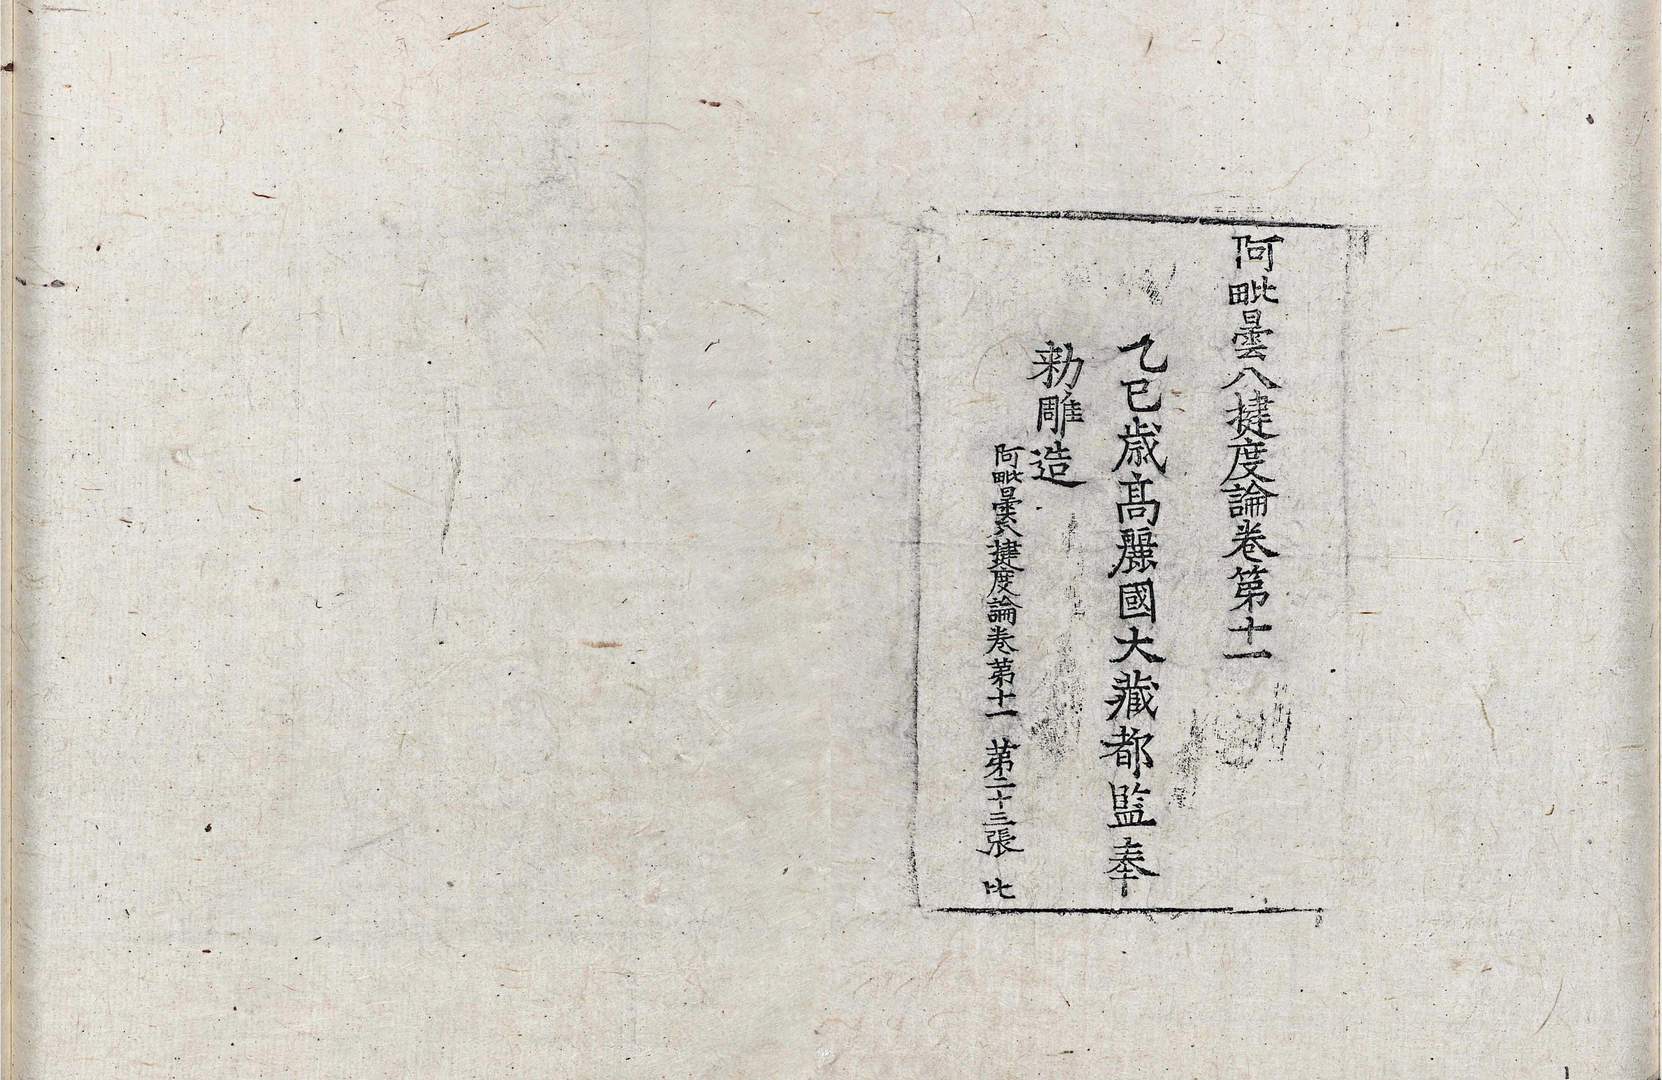 阿毗曇八揵度論卷第十一
乙巳歳高麗國大藏都監奉
勑雕造
阿毗曇八揵度論卷第十一 第二十三張 比